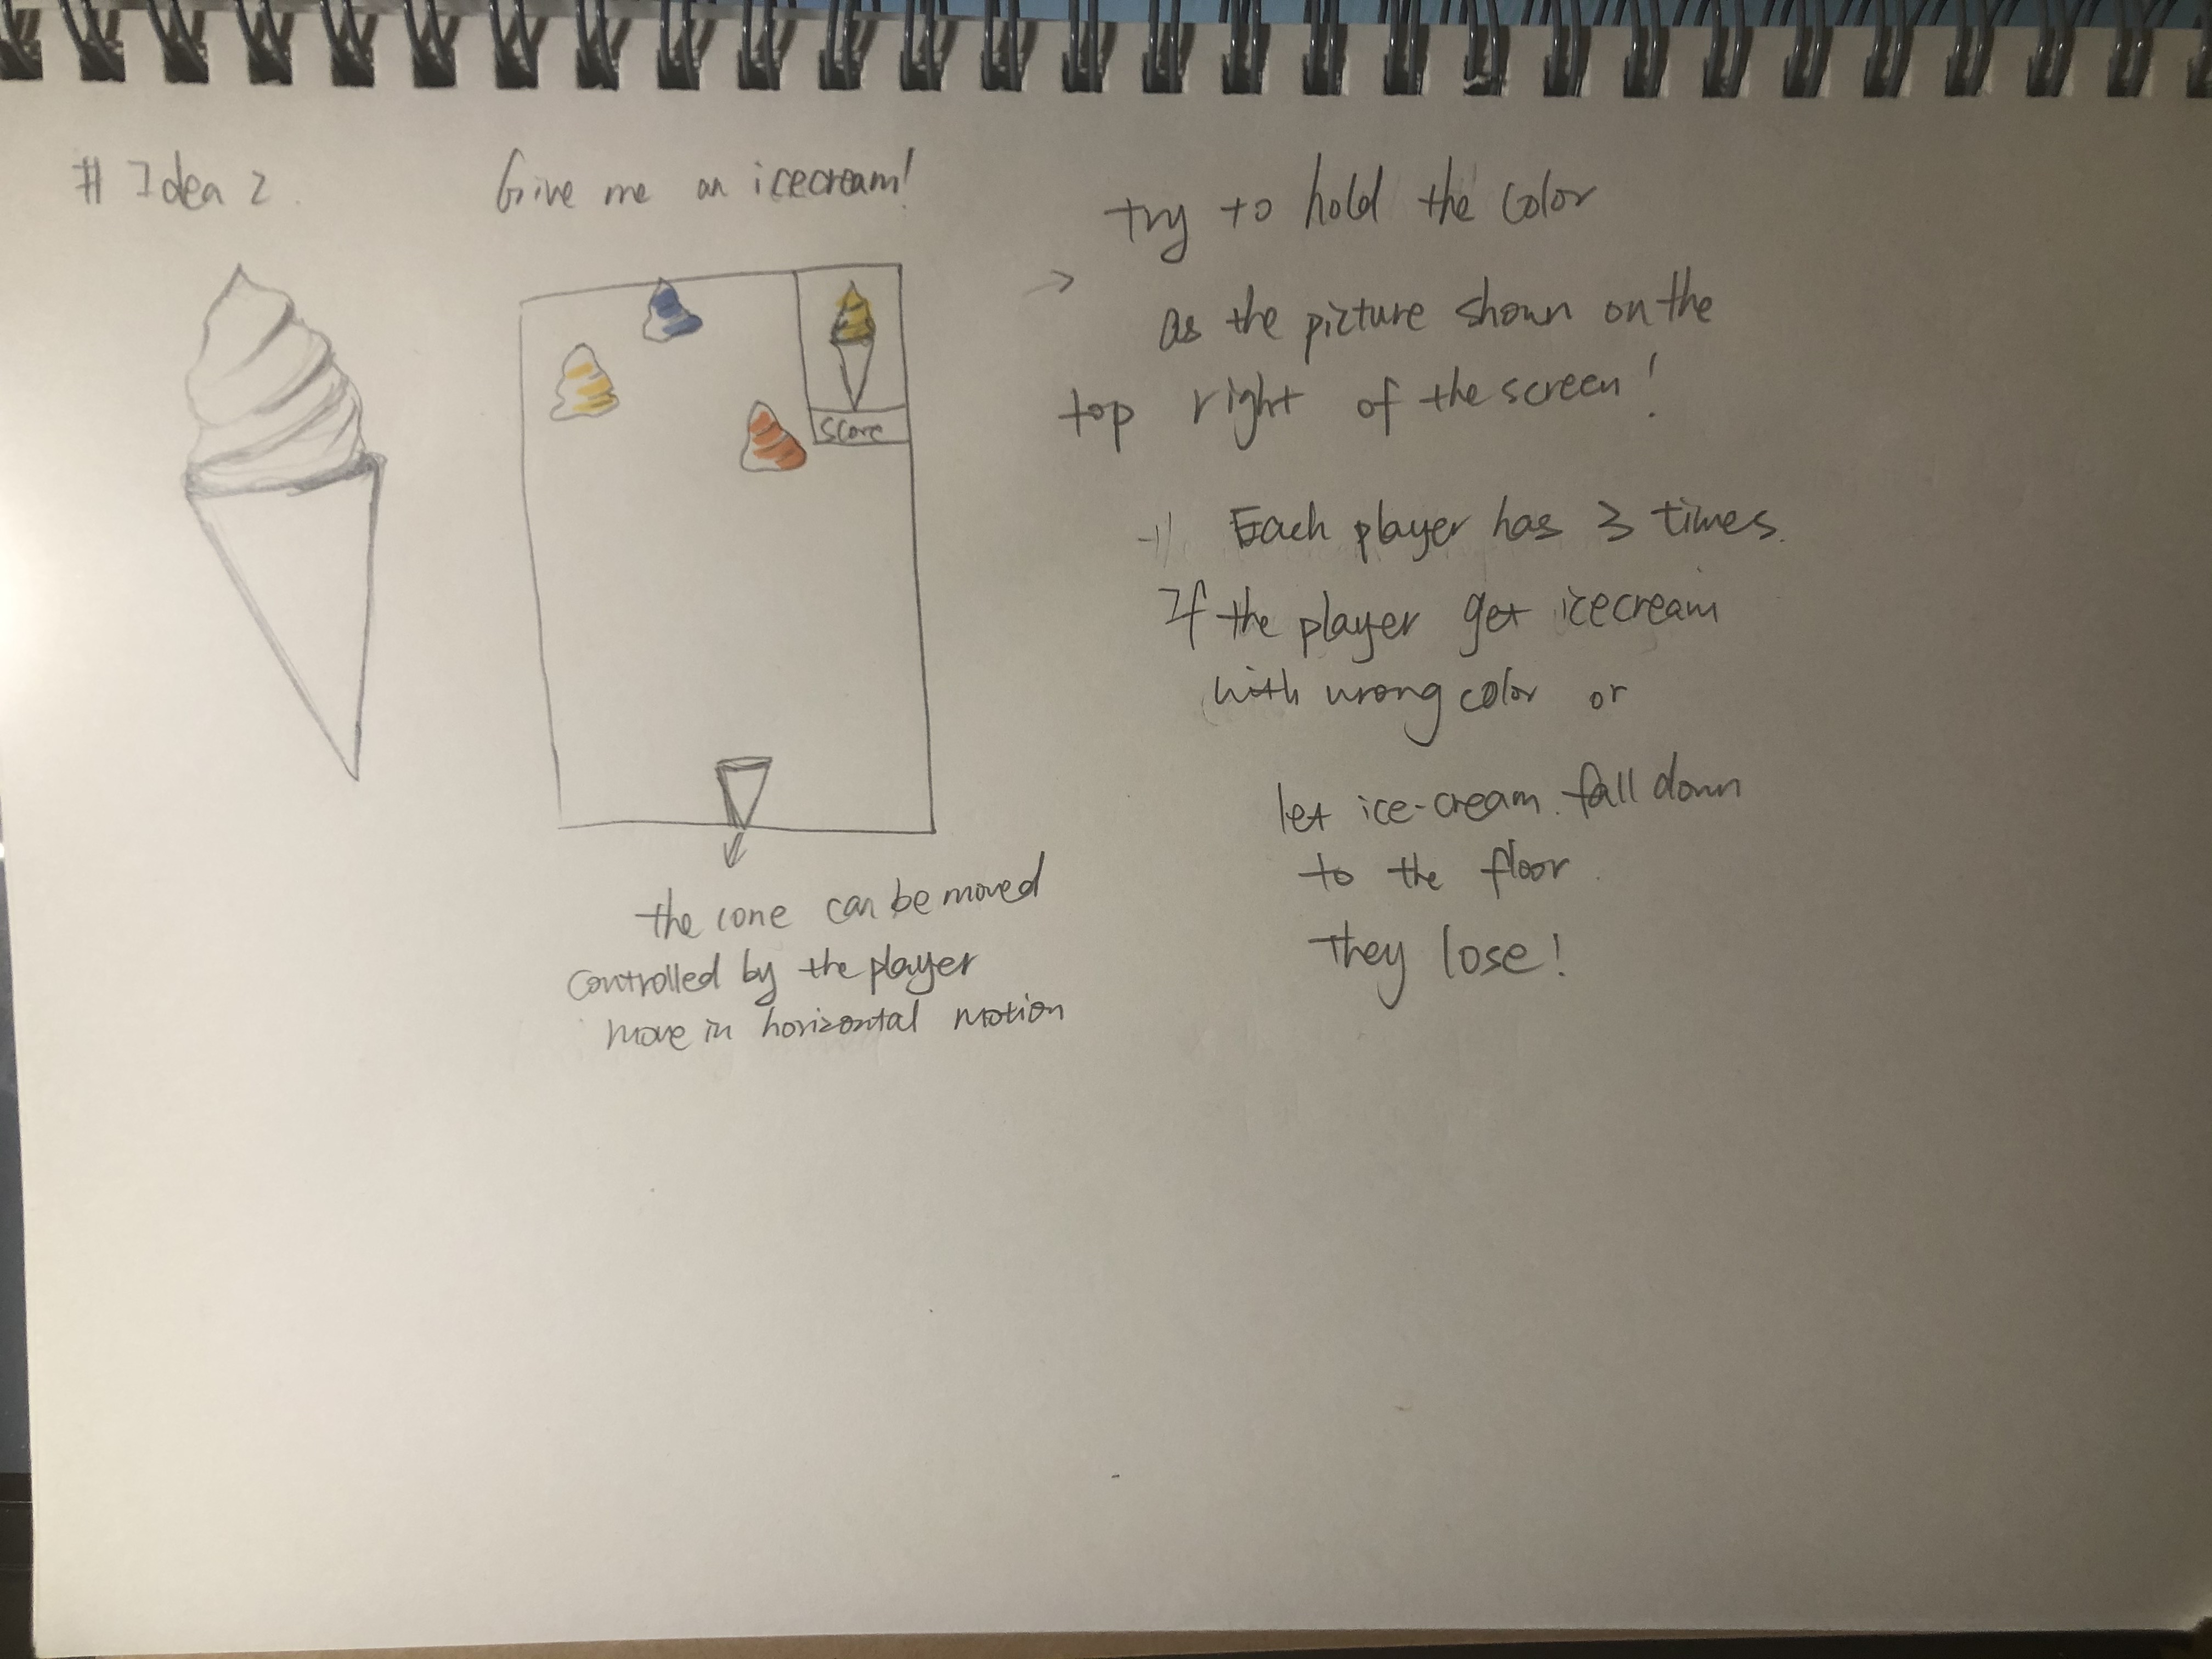 # Idea 2.
Give me an icecream!
score
the cone can be moved
controlled by the player
move in horizontal motion
→ try to hold the color
as the picture shown on the
top right of the screen!
Each player has 3 times.
If the player get icecream
with wrong color or
let ice-cream fall down
to the floor.
They lose!